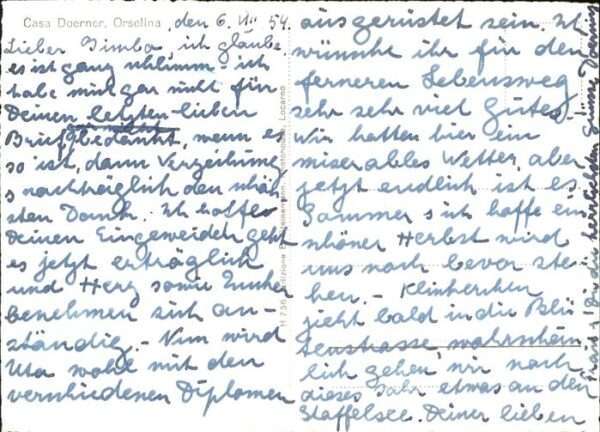 Casa Doerner, Orselina, den 6. VIII 54.
Lieber Simba, ich glaube
es ist ganz schlimm ich
habe mich gar nicht für
Deinen letzten lieben
Brief bedankt, wenn es
so ist, dann Verzeihung
u nachträglich den schön-
sten Dank. Ich hoffe
Deinen Eingeweiden geht
es jetzt erträglich
und Herz sowie Zucker
benehmen sich an-
ständig. – Nun wird
Uta wohl mit den
verschiedenen Diplomen
ausgerüstet sein. Ich
wünsche ihr für den
ferneren Lebensweg
sehr sehr viel Gutes.
Wir hatten hier ein
miserables Wetter, aber
jetzt endlich ist es
Sommer u ich hoffe ein
schöner Herbst wird
uns noch bevor ste-
hen. –
zieht bald in die Blü-
tenstrasse, wahrschein
lich gehen wir noch
dieses Jahr etwas an den
Staffelsee. Deiner lieben
Frau u Dir die herzlichsten Grüsse
H 736
Locarno